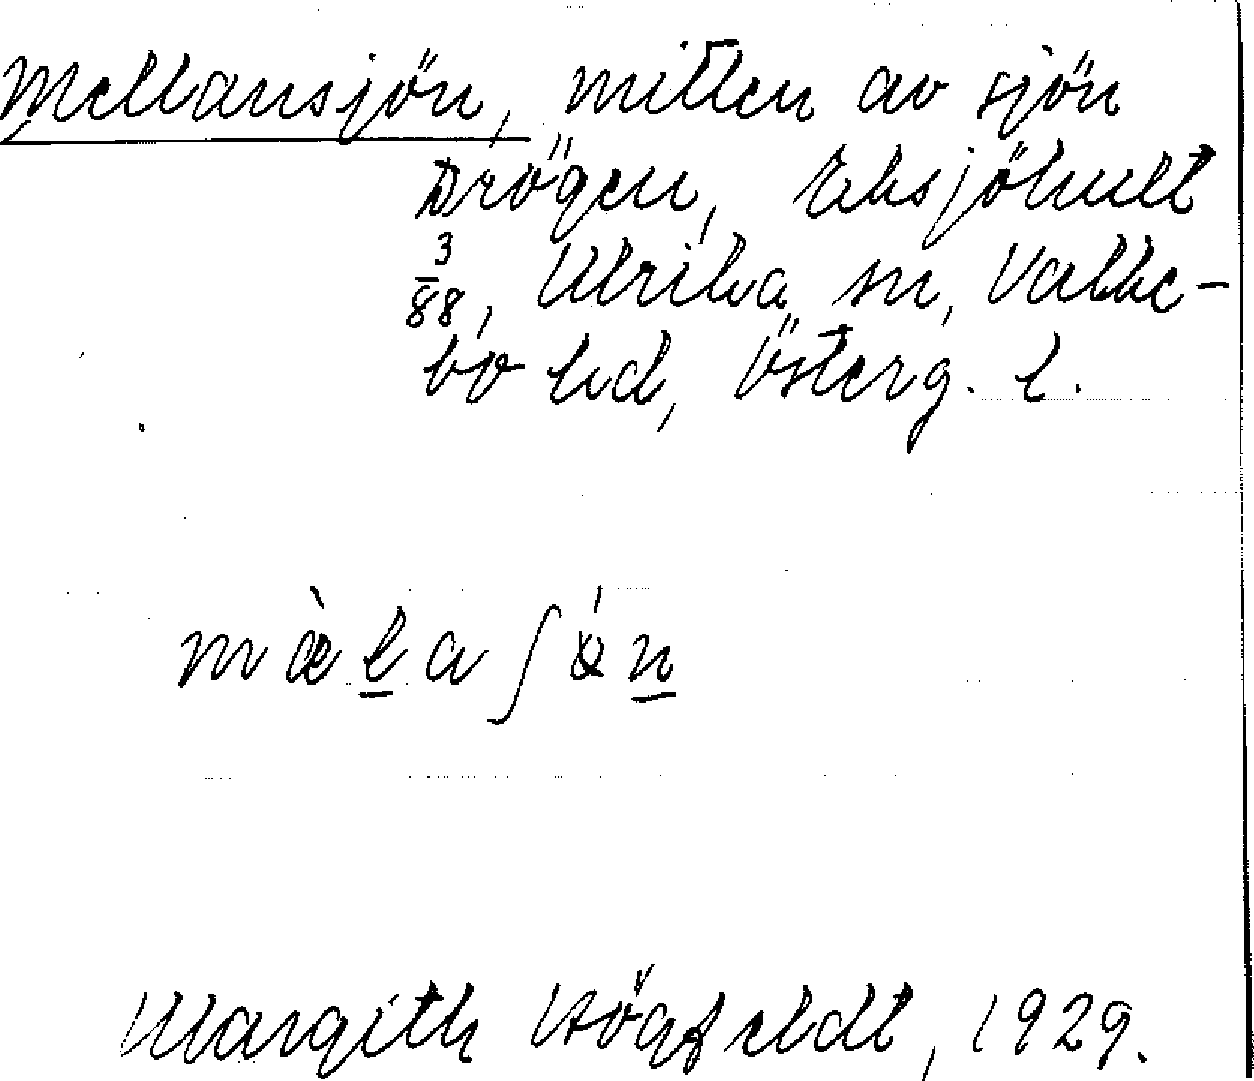 Mellansjön, mitten av sjön
Drögen, Eksjöhult
3/88, Ulrika sn, Valke-
bo hd, Österg. l.
mæ̀l̲aʃǿn̲
Margith Högfeldt, 1929.